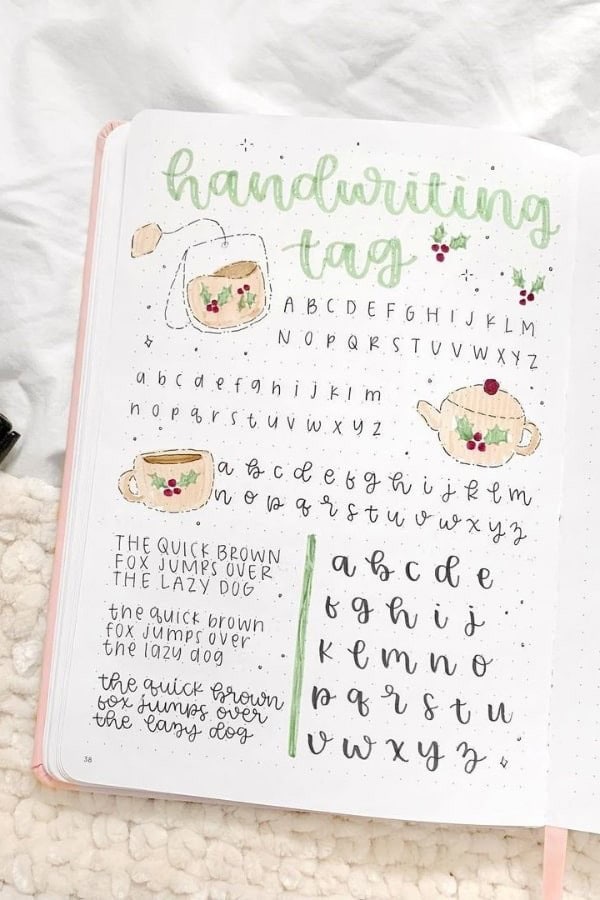 handwriting
tag
A B C D E F G H I J K L M
N O P Q R S T U V W X Y Z
a b c d e f g h i j k l m
n o p q r s t u v w x y z
a b c d e f g h i j k l m
n o p q r s t u v w x y z
THE QUICK BROWN
FOX JUMPS OVER
THE LAZY DOG
the quick brown
fox jumps over
the lazy dog
the quick brown
fox jumps over
the lazy dog
a b c d e
f g h i j
k l m n o
p q r s t u
v w x y z
38